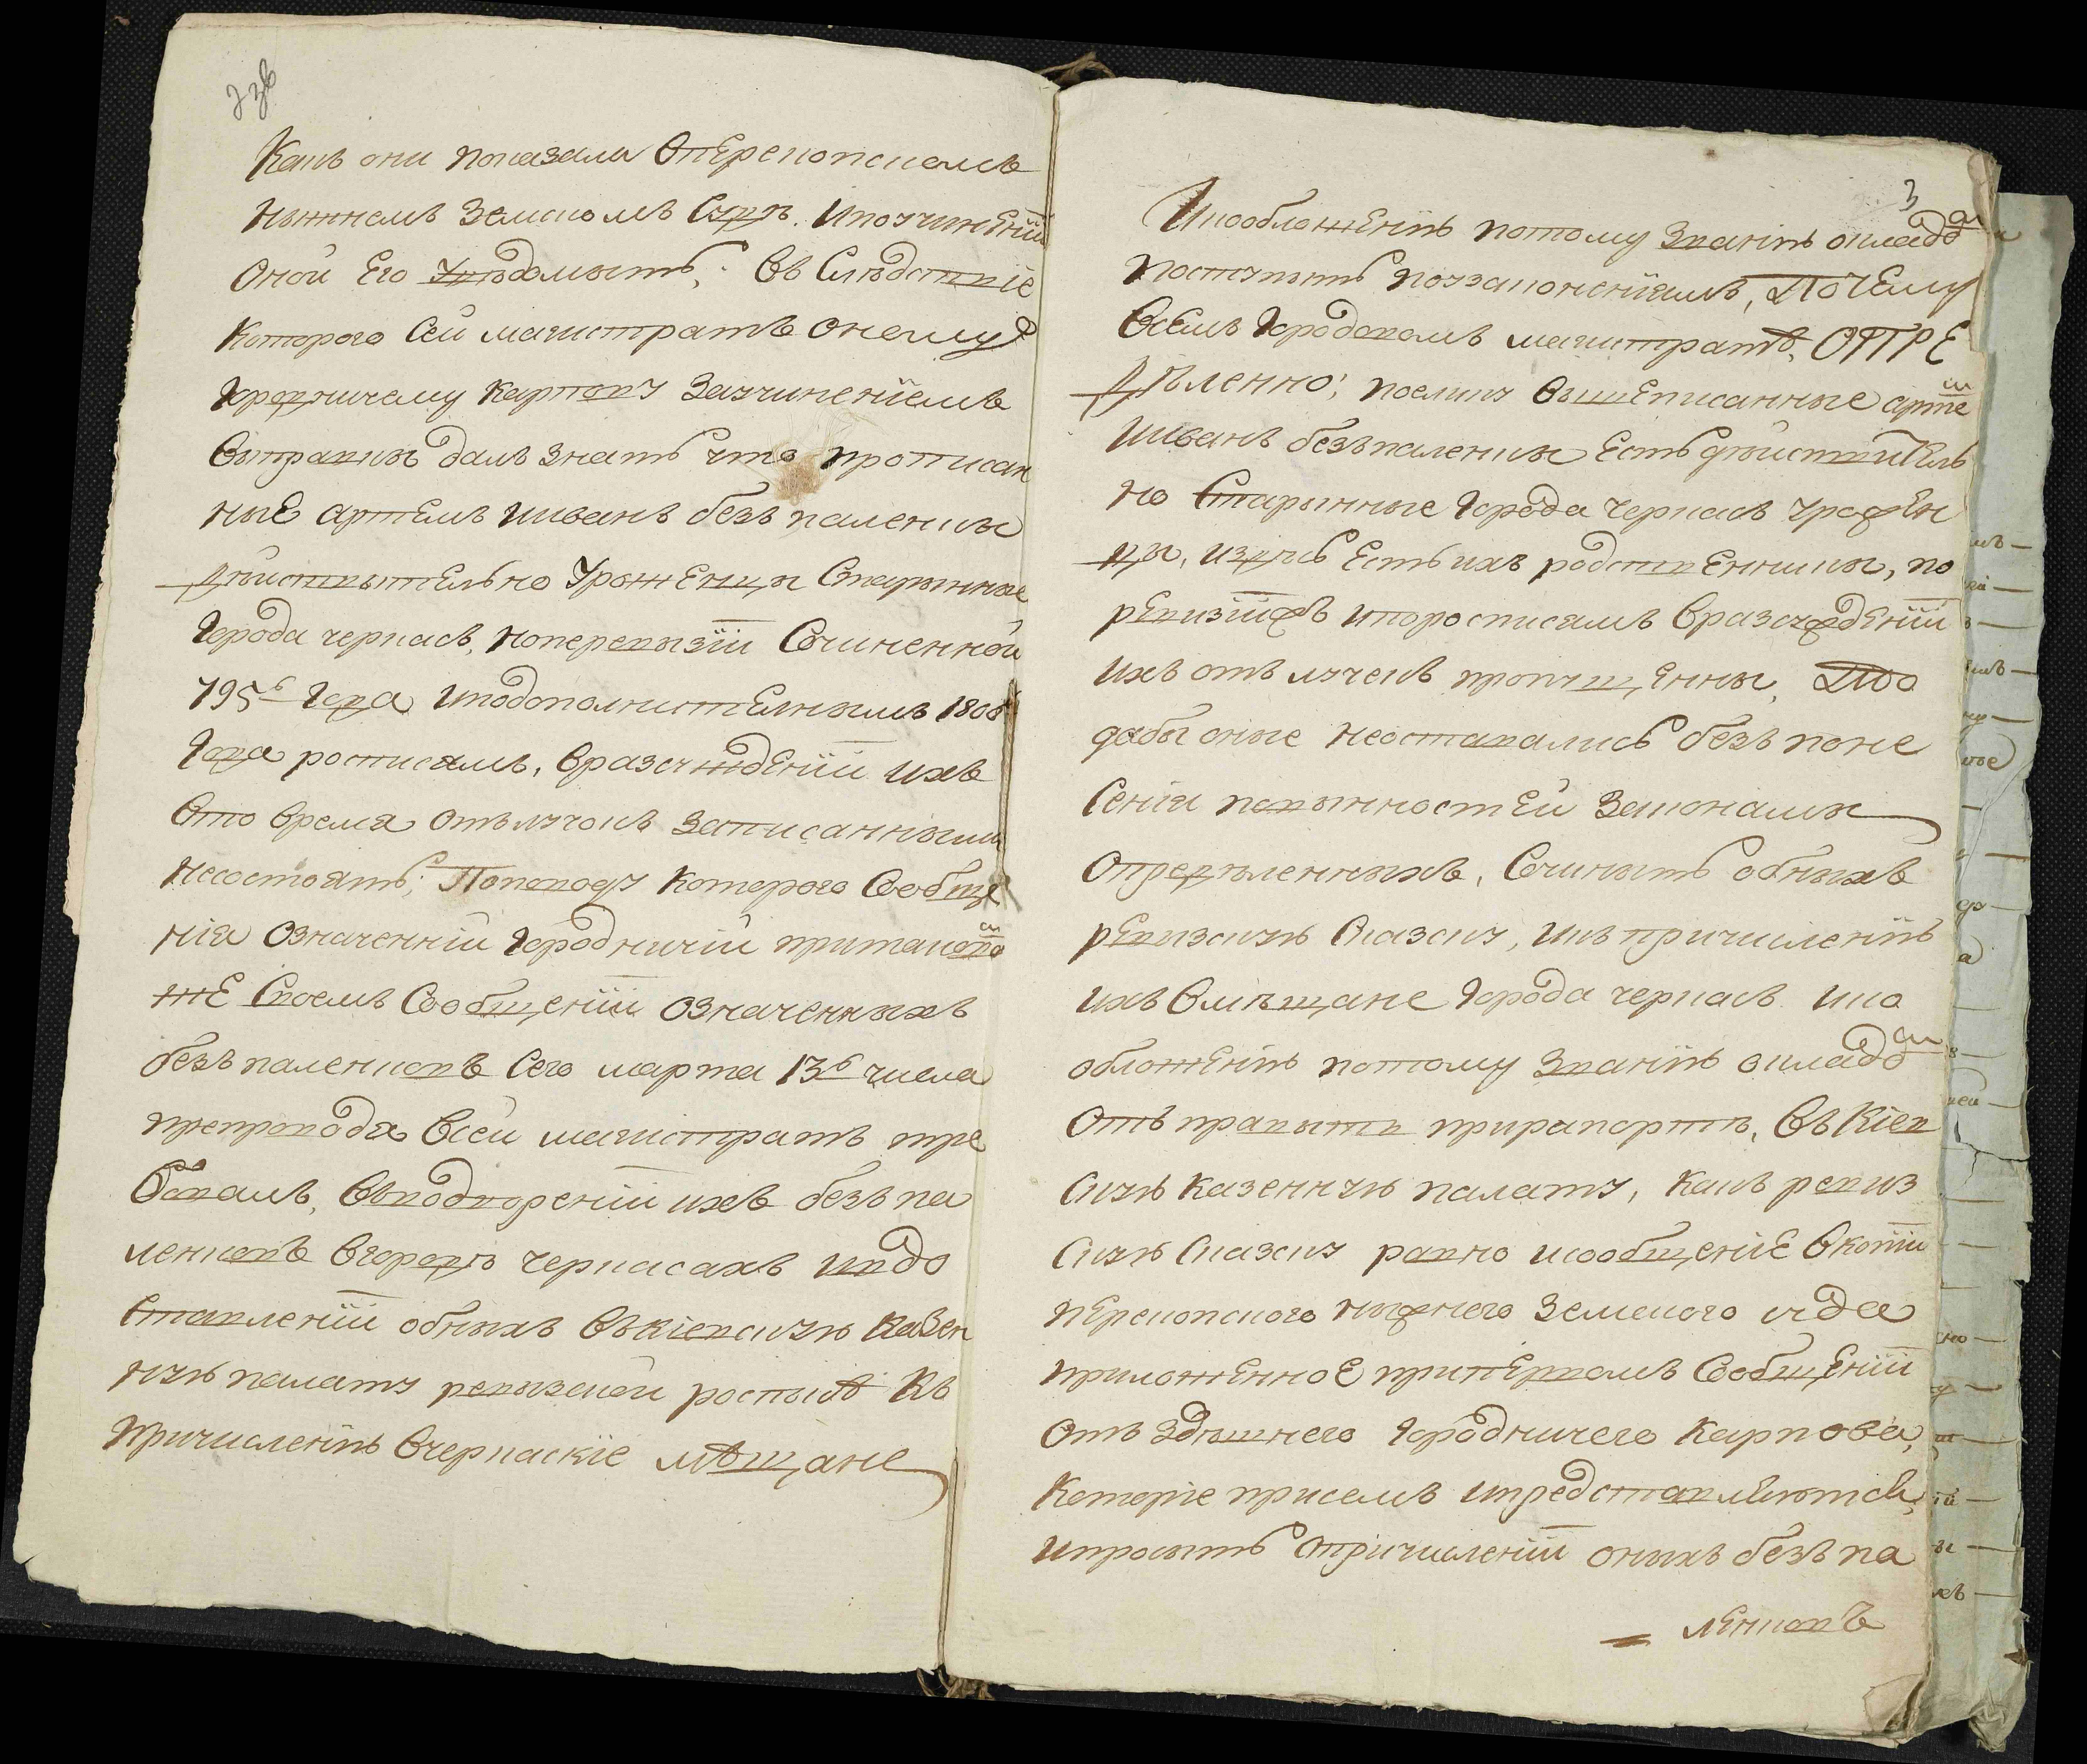 Какъ они показали Вперекопскомъ
Нижнемъ Земскомъ Судѣ. Ипоучиненіи
Оной Его Увѣдомить, Въ Слѣдствіе
Которого Сей магистратъ Оному
Городничему Карпову Заучиненіемъ
Выправки далъ Знать что прописан
ные артемъ Ииванъ безъпаленки
Дѣйствытельно Уроженцы Старинные
Города черкасъ, Ноперевызіи Сочиненной
795го Года Иподополнителнымъ 1808
Года росписямъ, Вразсужденіи ихъ
Вто время Отълучокъ Записанными
Несостоятъ; Поповоду Которого Сообще
нія Означенній Городничій притаково
же Своемъ Сообщеніи Означенныхъ
безъпаленковъ Сего марта 13го числа
препроводя Всей магистратъ тре
бовалъ, Овводвореніи ихъ безъпа
ленковъ Вгородѣ черкасахъ Ипдо
ставленіи обныхъ Вкіевскую Казен
ную палату ревызской роспыси Къ
Причисленію Вчеркаскіе мѣщане
3
Ипообложенію потому Званію окладой
Поступить поузаконеніямъ, Почему
Всемъ Городовомъ магистратѣ, ОПРЕ
Дѣленно; поелику Вышеписанные артемъ
Ииванъ безъпаленки Есть дѣйствитель
но Старинные Города Черкасъ Урожен
цы, издѣсь Есть ихъ родственники, по
ревизіижъ Ипоросписямъ Вразсужденіи
ихъ отълучекъ пропущенны, То
дабы оные Неоставались безъ поне
Сенія повынностей Законамы
Опредѣленныхъ, Сочинить обныхъ
ревизскую Сказску, Икъ причисленію
ихъ Вмѣщане Города черкасъ Ико
обложенію потому Званію окладой
Отъправыть прирапортѣ, Въ Кіев
Скую Казенную палату, Какъ ревиз
Скую Сказску равно исообщеніе Вкопіи
Перекопского нижнего Земского суда
приложенное припервомъ Сообщеніи
Отъ Здѣшнего Городничего Карпова,
Которіе присемъ ипредставляются,
ипросить Опричисленіи оныхъ безъпа
ленковъ